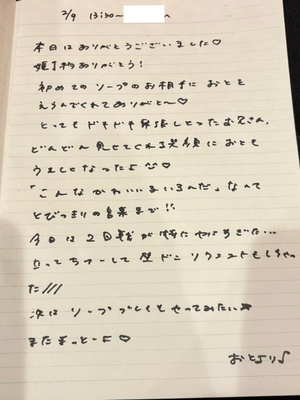 2/9 13:30〜 へ
本日はありがとうございました♡
差し入れありがとう!
初めてのソープのお相手に おとを
えらんでくれてありがと〜♡
とってもドキドキ緊張しとったお兄さん、
どんどん見せてくれる笑顔に おとも
うれしくなったよ♡
「こんなかわいいこいるんだ」なんて
とびっきりの言葉まで!!
今日は2回戦が特にやばすぎた…
立ってちゅーして壁ドンリクエストもしちゃっ
た///
次はソーププレイもやってみたい★
またまっとーよ♡
おとより♪